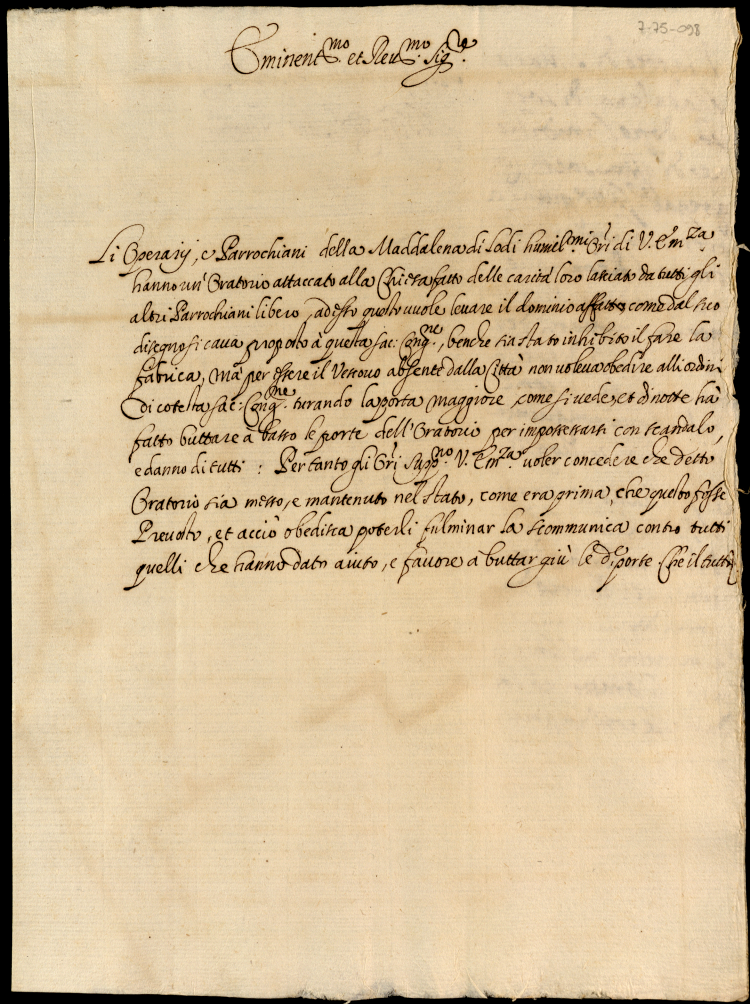 7-75-098
Eminent.mo et Reu.mo Sig.re
Li Operarij, e Parrochiani della Maddalena di Lodi humil.mi Ori di V. Em.za
hanno un' Oratorio attaccato alla Chiesa fatto delle carità loro lasciato da tutti gli
altri Parrochiani libero, adesso questo vuole leuare il dominio affatto come dal suo
disegno si caua proposto à questa sac: Cong.ne, benche sia stato inhibito il fare la
fabrica, mà per essere il Vescouo absente dalla Città non voleua obedire alli ordini
di cotesta sac: Cong.ne turando la porta maggiore come si vede, et di notte hà
fatto buttare à basso le porte dell'Oratorio per impossessarsi con scandalo,
e danno di tutti: Per tanto gli Ori supp.no V. Em.za voler concedere che detto
Oratorio sia messo, e mantenuto nel stato, come era prima, che questo fosse
Preuosto, et acciò obedisca poterli fulminar la scommunica contro tutti
quelli che hanno dato aiuto, e fauore à buttar giù le d.e porte. Che il tutto